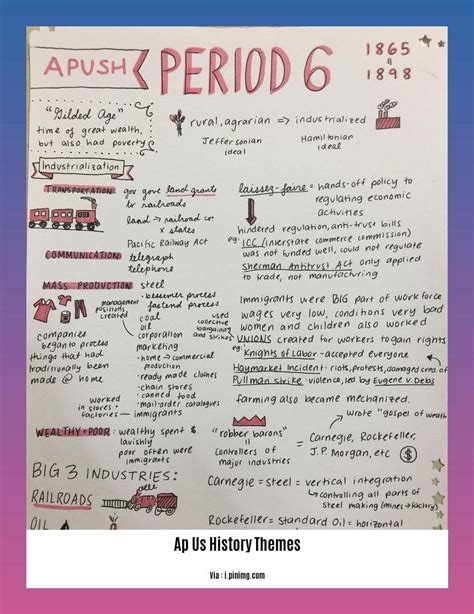 APUSH
PERIOD 6
1865
1898
"Gilded Age"
time of great wealth,
but also had poverty
rural, agrarian => industrialized
Jeffersonian ideal
Hamiltonian ideal
Industrialization
TRANSPORTATION
gov gave land grants
to railroads
land → railroad co.
x states
Pacific Railway Act
COMMUNICATION
telegraph
telephone
MASS PRODUCTION
steel
· bessemer process
fastend process
management
positions
created
coal
oil
corporation
marketing
used
collective
bargaining
and strikes
companies
began to process
things that had
traditionally been
made @ home
· home → commercial
production
· ready made clothes
· chain stores
· canned food
· mail-order catalogues
worked
in stores +
factories
immigrants
WEALTHY + POOR
wealthy spent
lavishly
poor often were
immigrants
BIG 3 INDUSTRIES:
RAILROADS
OIL
laissez-faire = hands-off policy to
regulating economic
activities
hindered regulation, anti-trust bills
eg: ICC (interstate commerce commission)
was not funded well, could not regulate
Sherman Antitrust Act only applied
to trade, not manufacturing
Immigrants were BIG part of work force
wages very low, conditions very bad
women and children also worked
UNIONS created for workers to gain rights
eg: Knights of Labor - accepted everyone
Haymarket Incident: riots, protests, damaged cred. of
Pullman strike violence, led by Eugene V. Debs
farming also became mechanized.
wrote "gospel of wealth
"robber barons"
=
controllers of
major industries
Carnegie, Rockefeller,
J.P. Morgan, etc
$
Carnegie = steel = vertical integration
controlling all parts of
steel making (mines → factory)
Rockefeller = Standard Oil = horizontal
Ap Us History Themes
Via : i.pinimg.com